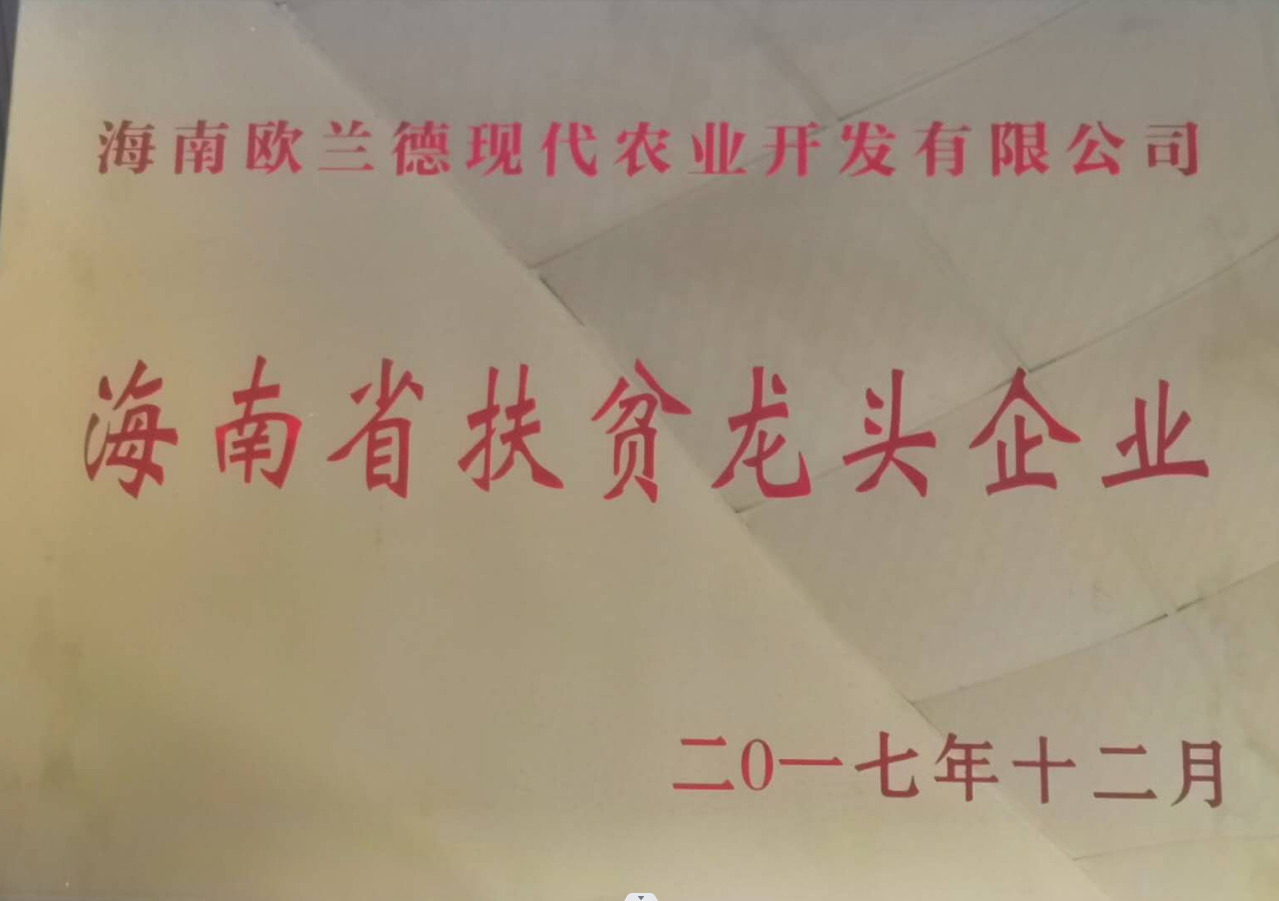 海南欧兰德现代农业开发有限公司
海南省扶贫龙头企业
二0一七年十二月